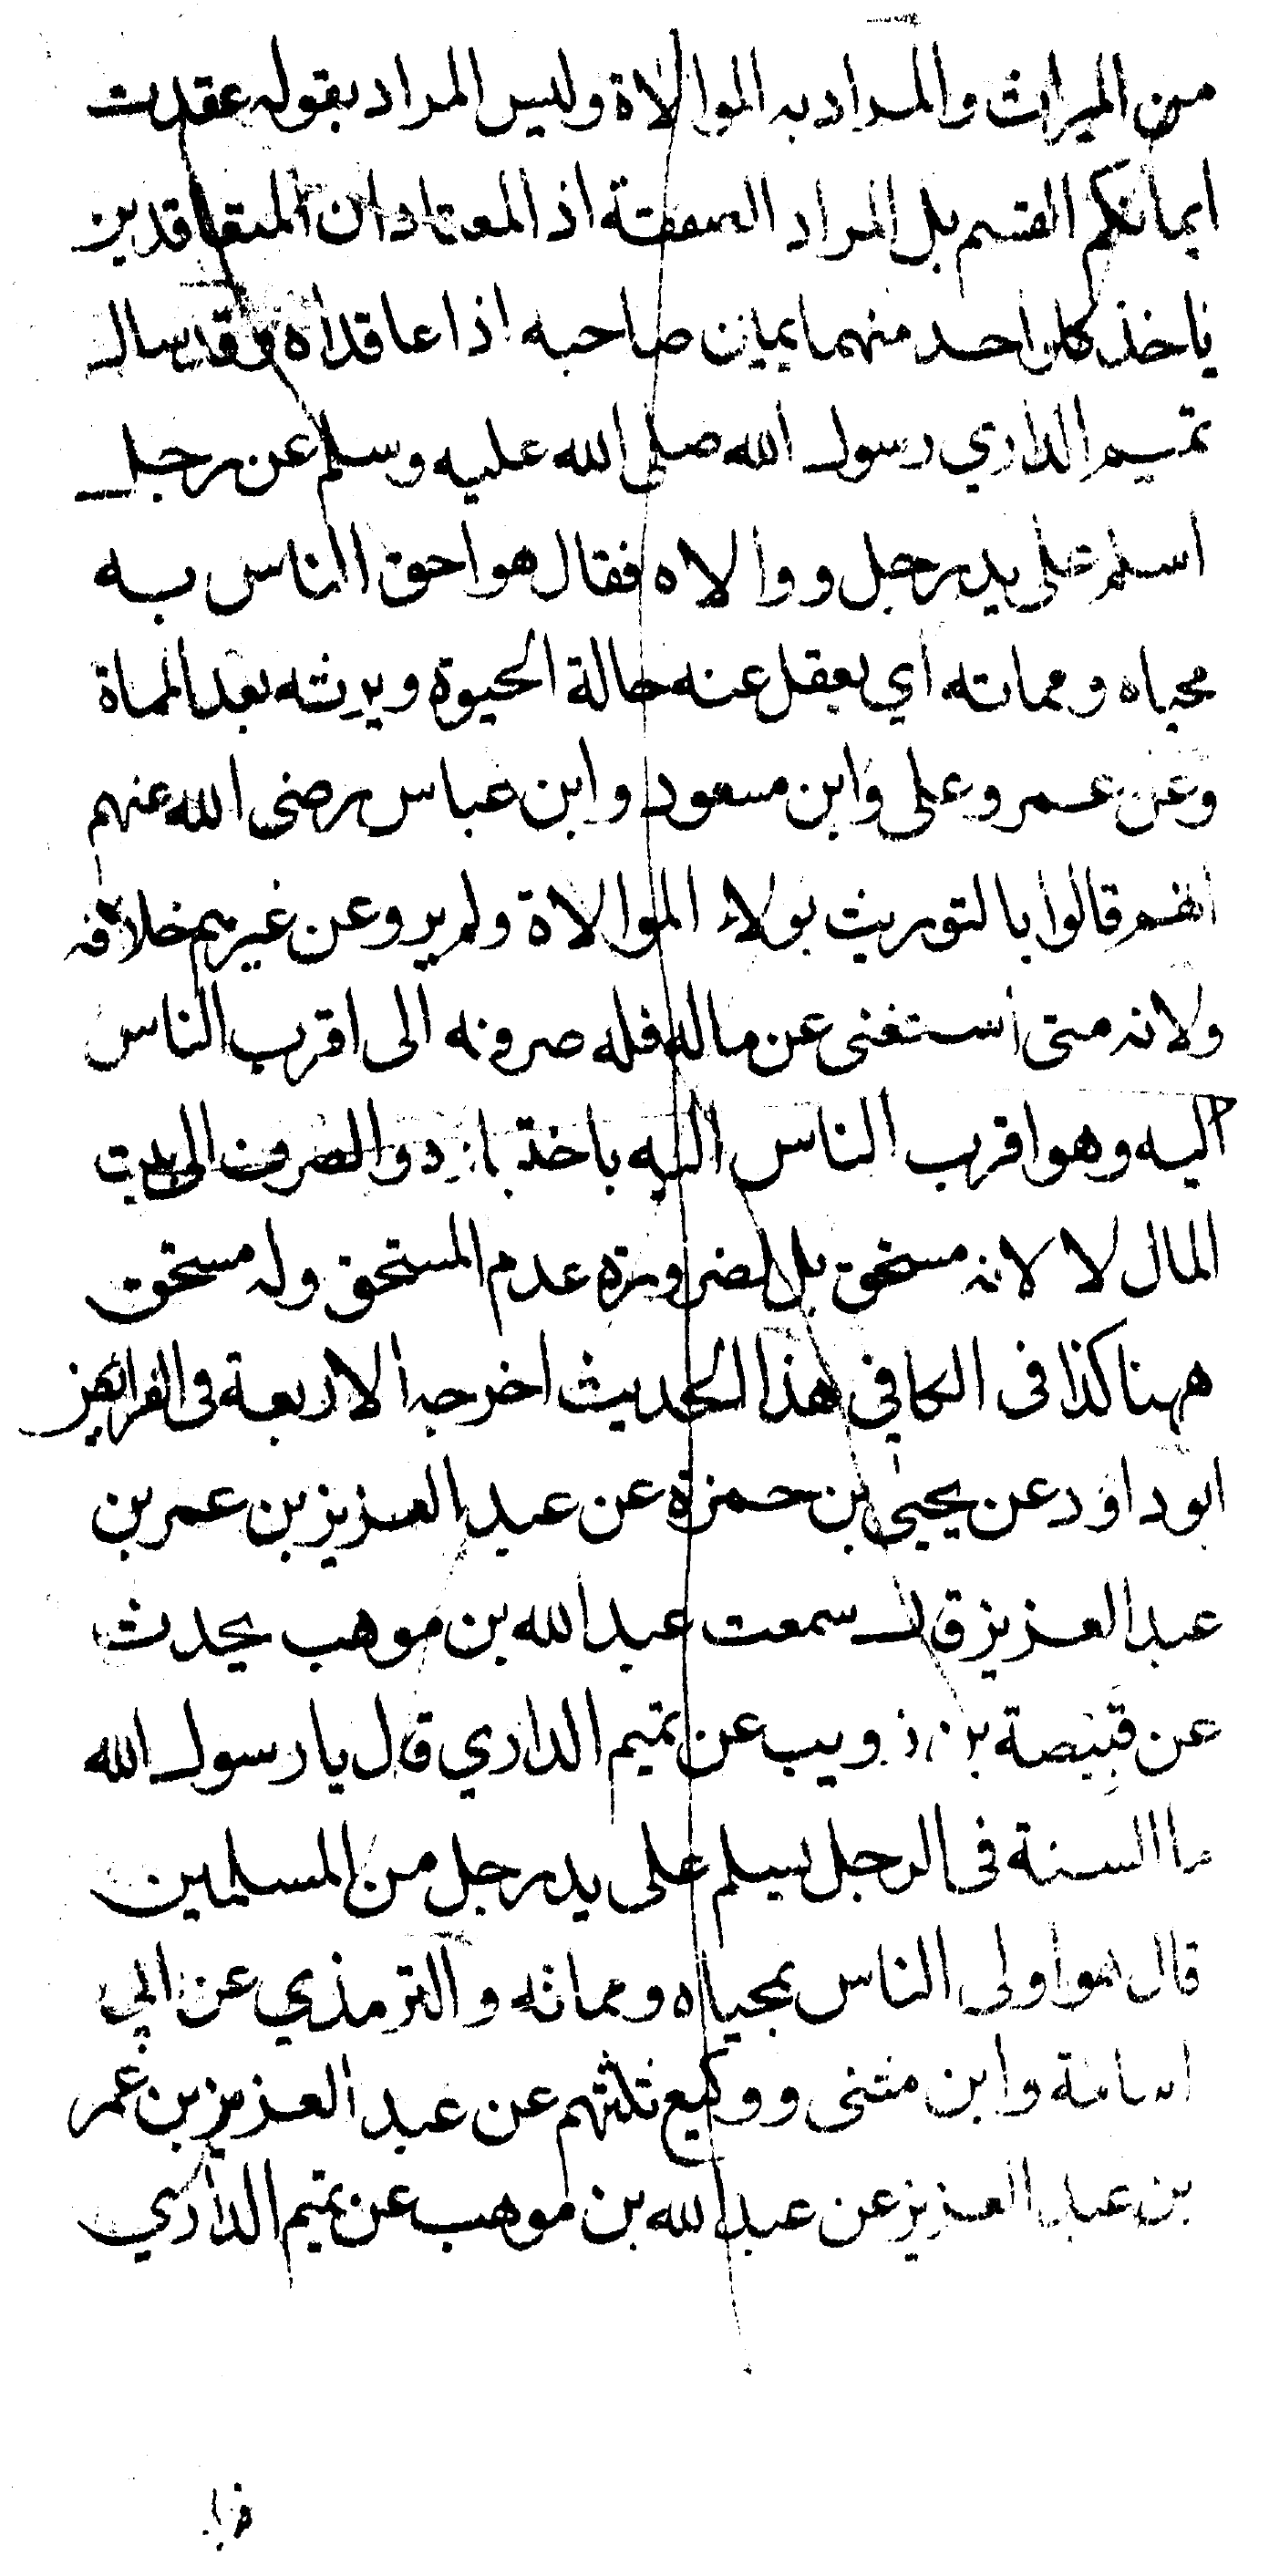 من الميراث والمراد به الموالاة وليس المراد بقوله عقدت
ايمانكم القسم بل المراد الصفقة اذ المعتاد ان المتعاقدين
ياخذ كل واحد منهما يمين صاحبه اذا عاقداه وقد سال
تميم الداري رسول الله صلى الله عليه وسلم عن رجل
اسلم على يد رجل ووالاه فقال هو احق الناس به
محياه ومماته اي يعقل عنه حالة الحيوة ويرثه بعد المماة
وعن عمر وعلى وابن مسعود وابن عباس رضى الله عنهم
انهم قالوا بالتوريث بولاء الموالاة ولم يرو عن غيرهم خلافه
ولانه متى استغنى عن ماله فله صرفه الى اقرب الناس
اليه وهو اقرب الناس اليه والصرف الى بيت
المال لا لانه مستحق بل لضرورة عدم المستحق وله مستحق
ههنا كذا فى الكافي هذا الحديث اخرجه الاربعة فى الفرائض
ابو داود عن يحيى بن حمزة عن عبد العزيز بن عمر بن
عبد العزيز قال سمعت عبد الله بن موهب يحدث
عن قبيصة بن ذويب عن تميم الداري قال يا رسول الله
ما السنة فى الرجل يسلم على يد رجل من المسلمين
قال هو اولى الناس بمحياه ومماته والترمذي عن ابي
اسامة وابن مثنى ووكيع ثلثهم عن عبد العزيز بن عمر
بن عبد العزيز عن عبد الله بن موهب عن تميم الداري